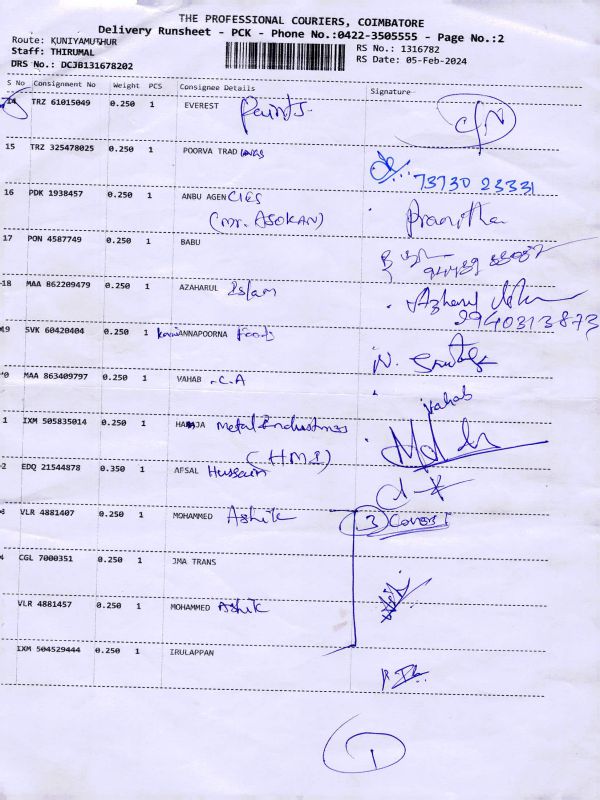 THE PROFESSIONAL COURIERS, COIMBATORE
Delivery Runsheet - PCK - Phone No.:0422-3505555 - Page No.:2
Route: KUNIYAMUTHUR
Staff: THIRUMAL
RS No.: 1316782
DRS No.: DCJB131678202
RS Date: 05-Feb-2024
S No Consignment No Weight PCS Consignee Details Signature
14 TRZ 61015049 0.250 1 EVEREST Paints
15 TRZ 325478025 0.250 1 POORVA TRADINGS
73730 23331
16 PDK 1938457 0.250 1 ANBU AGENCIES
(Mr. ASOKAN) Pranitha
17 PON 4587749 0.250 1 BABU
18 MAA 862209479 0.250 1 AZAHARUL Islam
9940313873
19 SVK 60420404 0.250 1 ANNAPOORNA Foods
0 MAA 863409797 0.250 1 VAHAB .C.A
Vahab
1 IXM 505835014 0.250 1 HAMJA Metal Industries
(H.M.I)
2 EDQ 21544878 0.350 1 AFSAL Hussain
3 VLR 4881407 0.250 1 MOHAMMED Ashik (3) Cover
4 CGL 7000351 0.250 1 JMA TRANS
VLR 4881457 0.250 1 MOHAMMED Ashik
IXM 504529444 0.250 1 IRULAPPAN